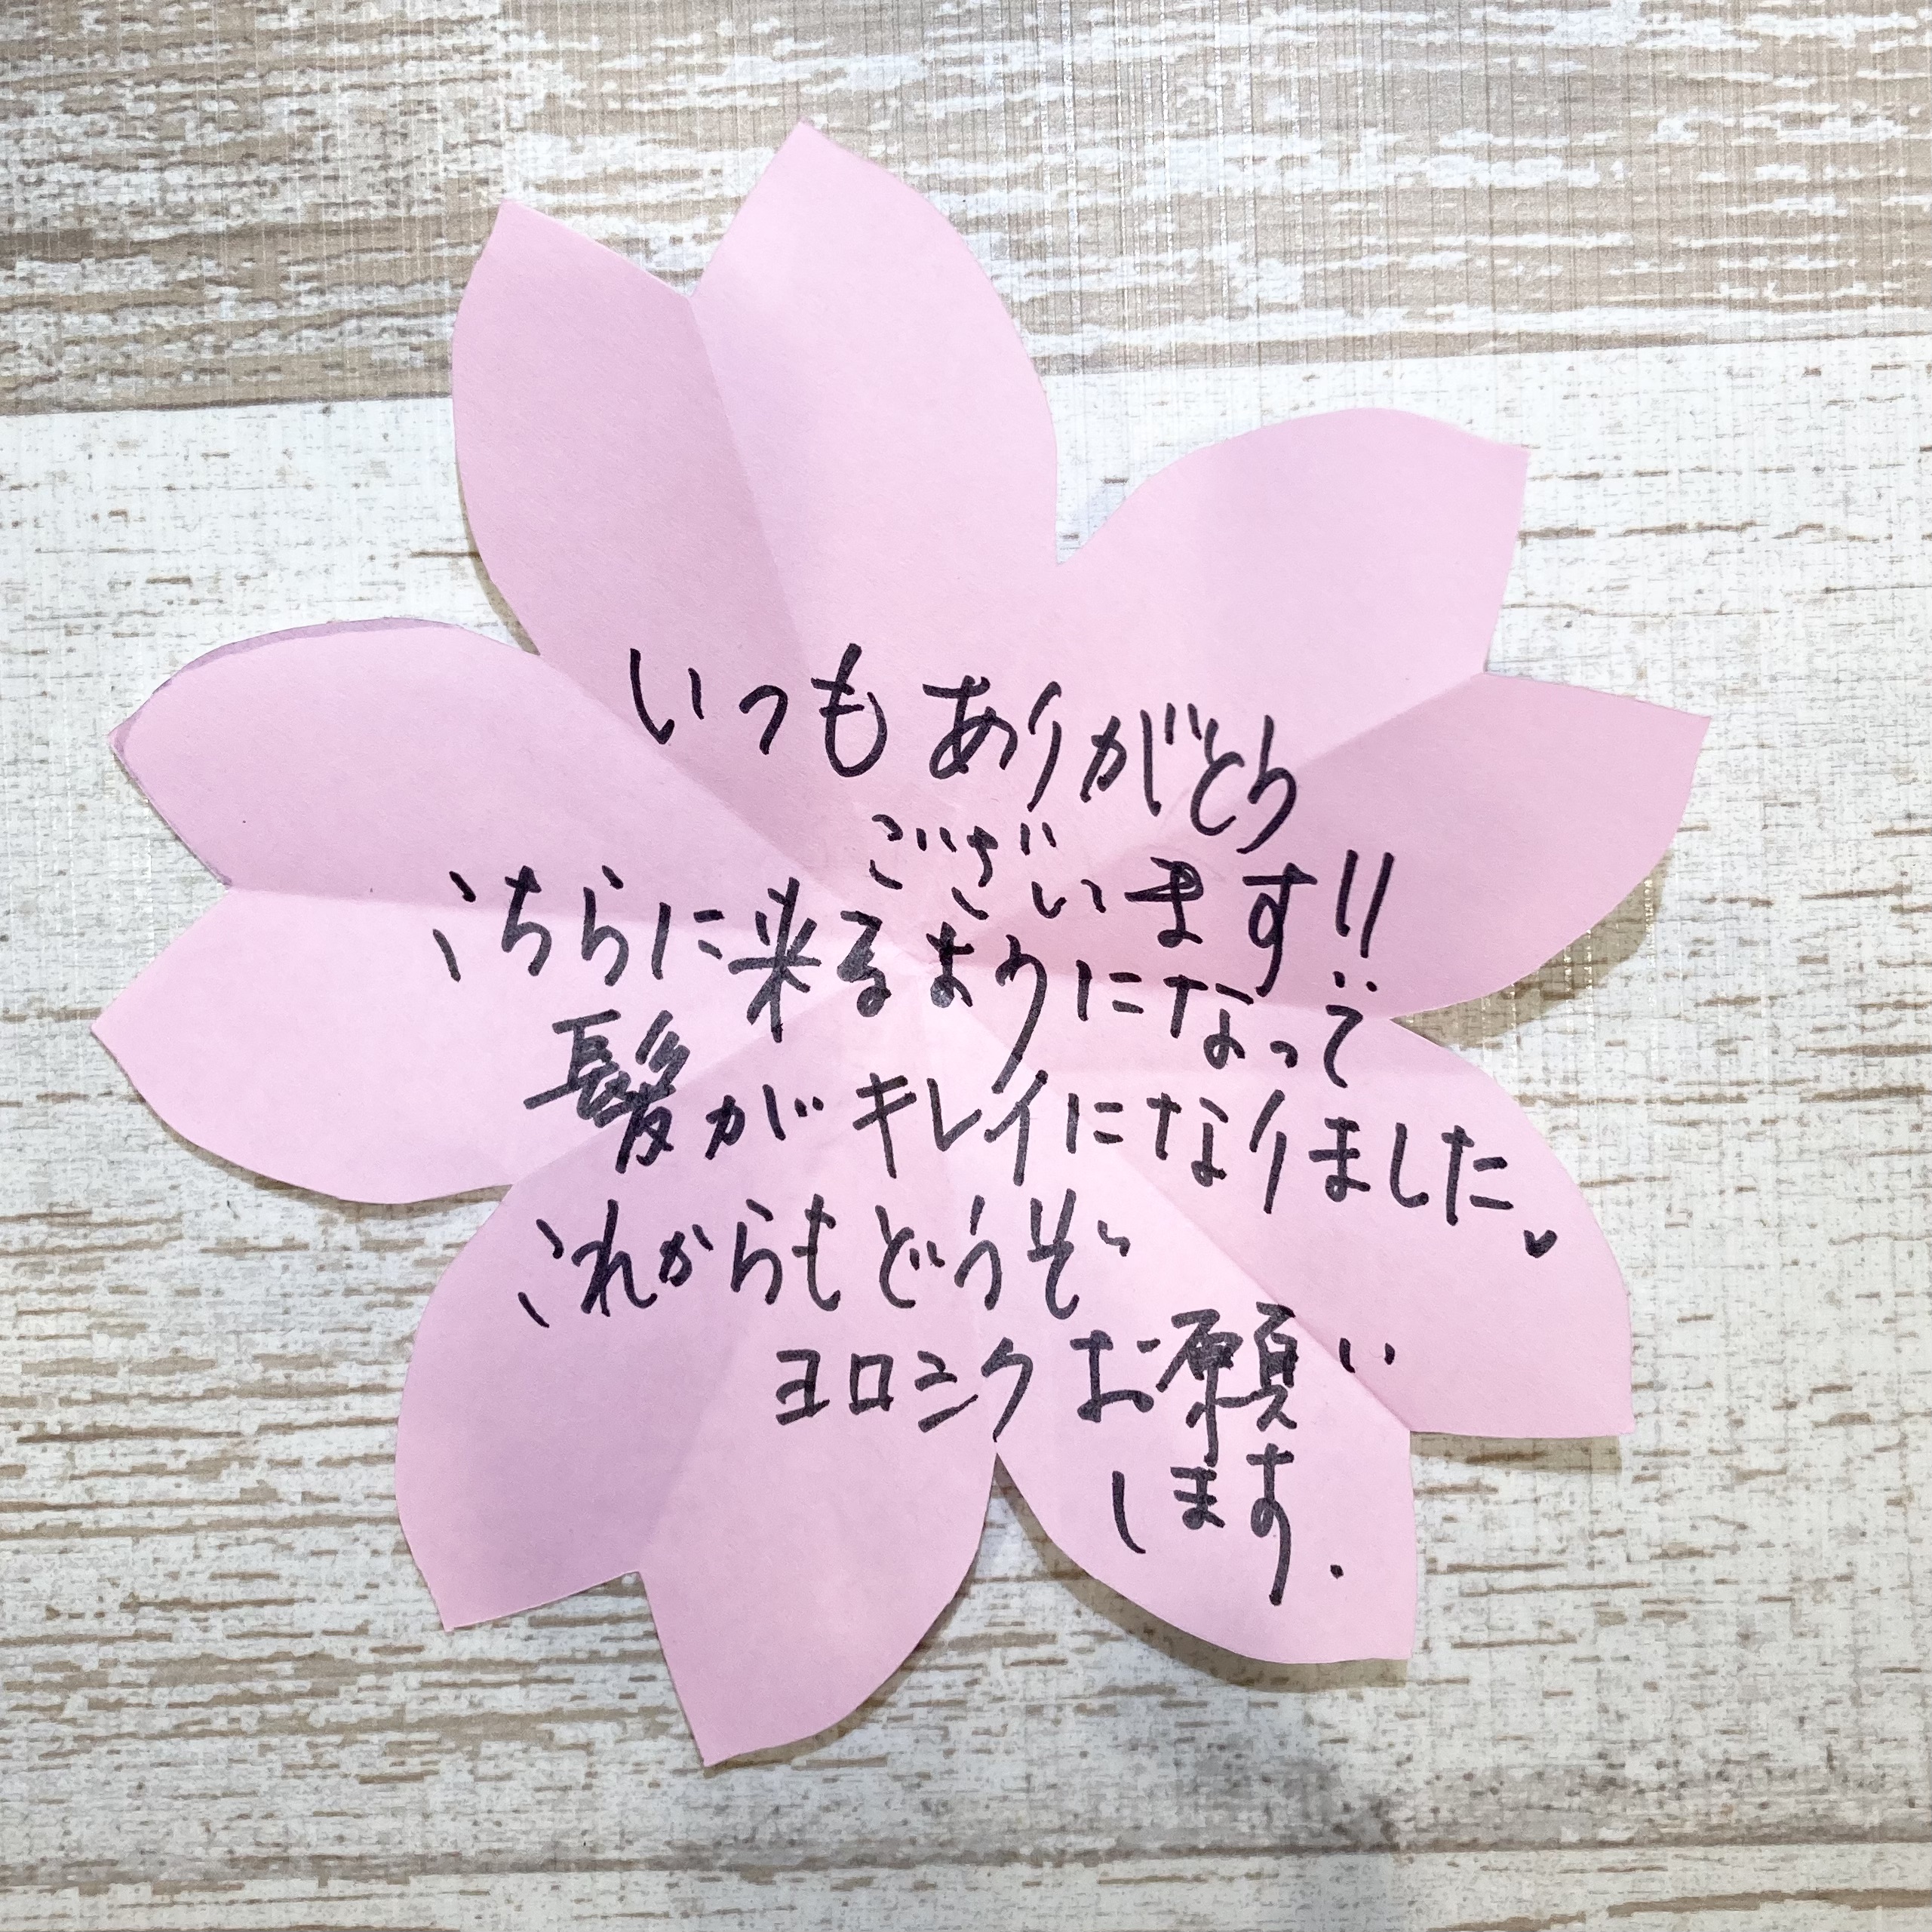 いつもありがとう
ございます!!
こちらに来るようになって
髪がキレイになりました♥
これからもどうぞ
ヨロシクお願い
します.